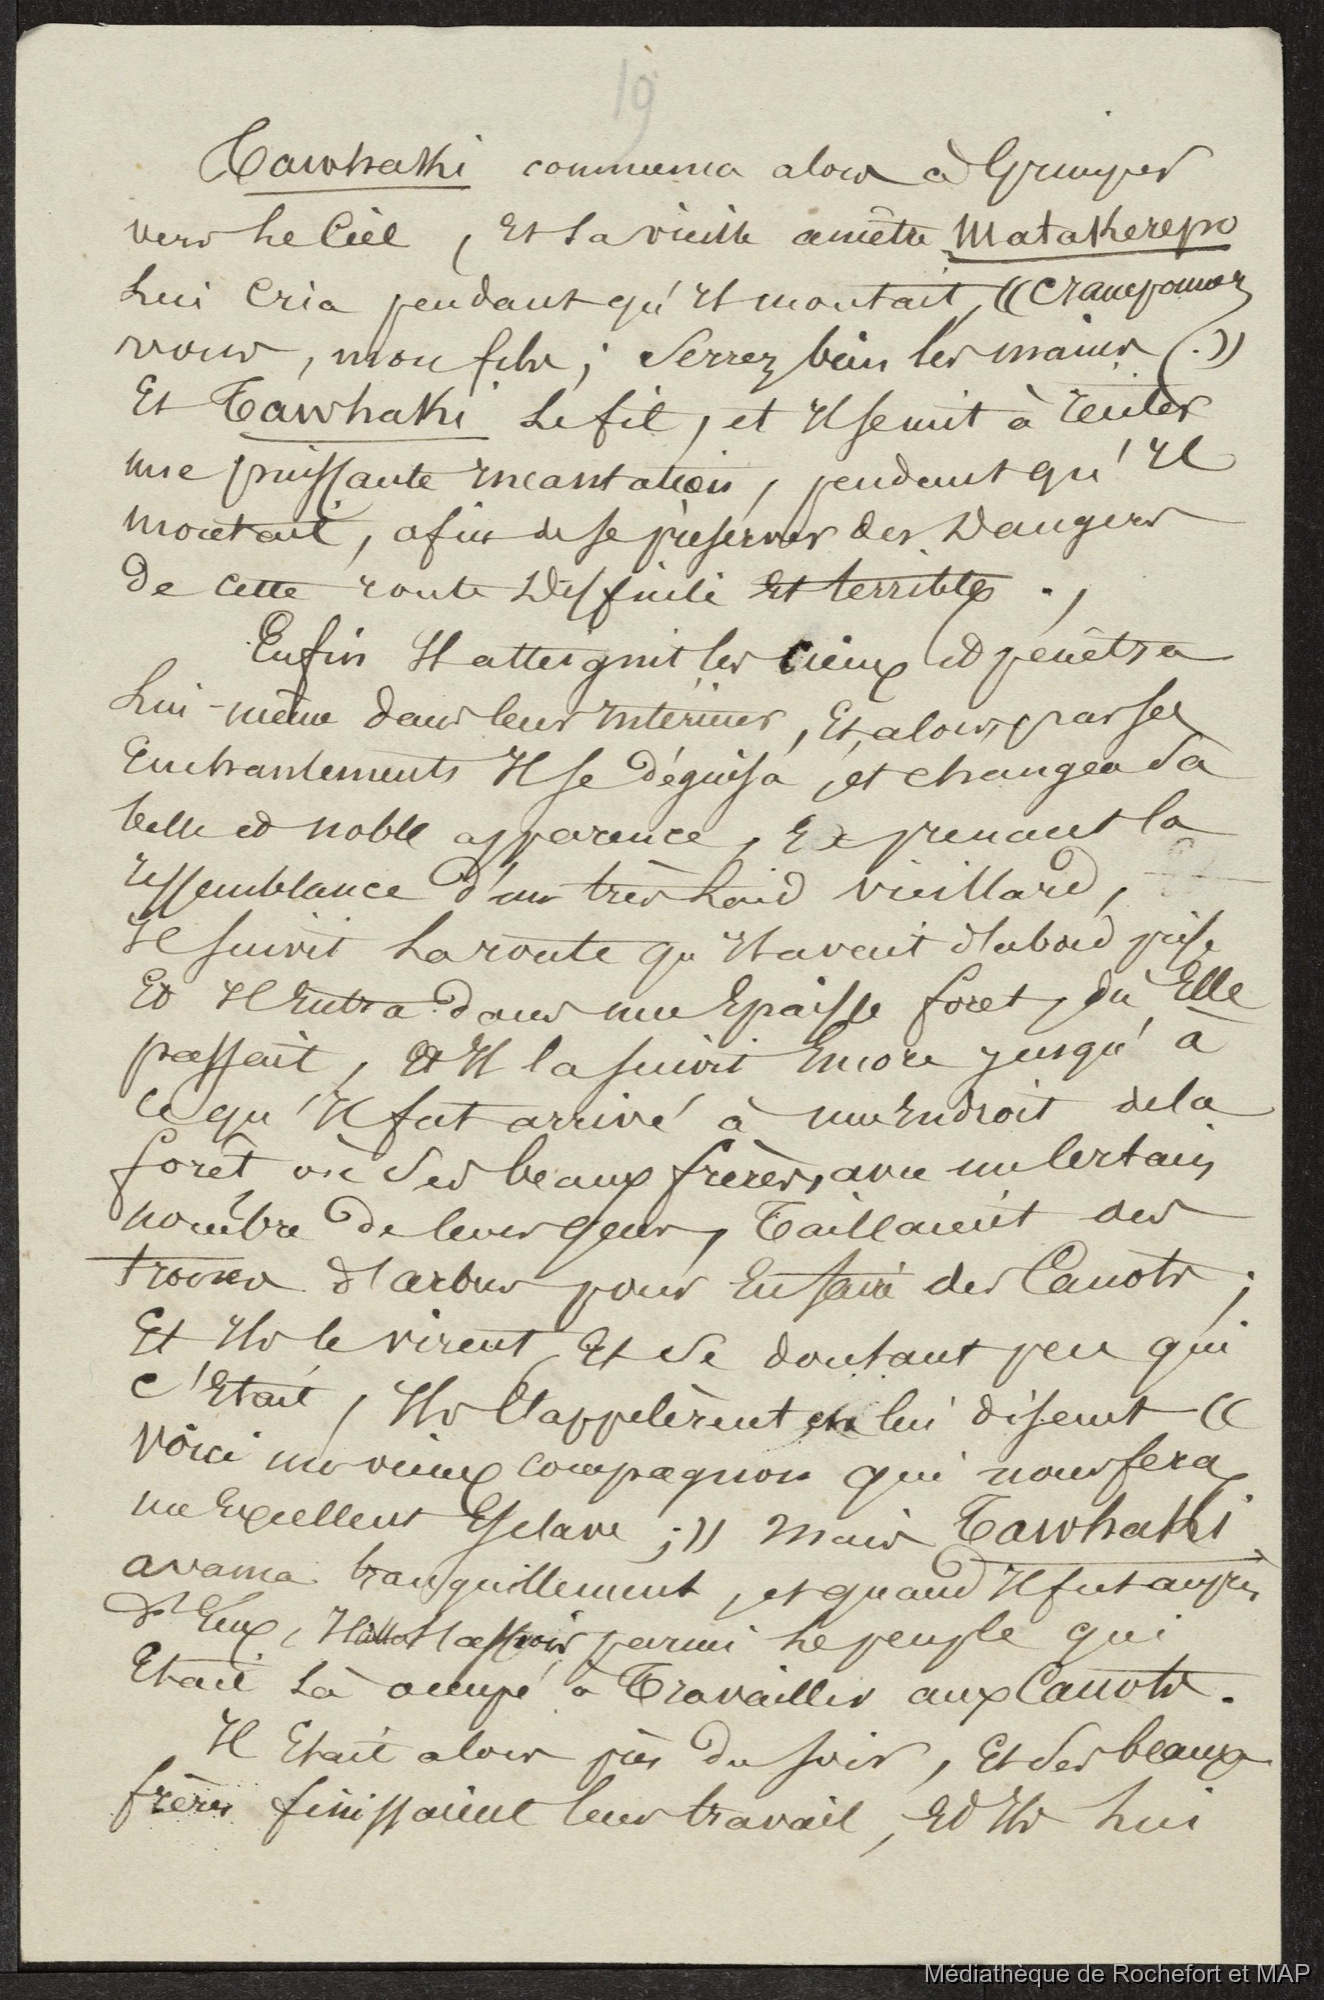 19
Tawhaki commença alors à Grimper
vers le Ciel, Et la vieille ancêtre Matakerepo
lui Cria pendant qu'Il montait, "Cramponnez
vous, mon fils ; Serrez bien les mains (.")
Et Tawhaki le fil, et Il se mit à réciter
une puissante Incantation, pendant qu'Il
montait, afin de se préserver des Dangers
de cette route Difficile Et terrible.,
Enfin Il atteignit les Cieux et pénêtra
lui-même dans leur Intérieur, Et, alors, par ses
Enchantements Il se déguisa, et changea Sa
belle et noble apparence, Et prenant la
ressemblance d'un très laid vieillard,
Il suivit la route qu'Il avait d'abord prise
Et Il Entra dans une Epaisse foret, où Elle
passait, Et Il la suivit Encore jusqu'à
ce qu'Il fut arrivé à un Endroit de la
forêt où Ses beaux frères, avec un Certain
nombre de leurs gens, Taillaient des
troncs d'arbres pour En faire des Canots ;
Et Ils le virent, Et Se doutant peu qui
c'Etait, Ils l'appelèrent en lui disant "
Voici un vieux compagnon qui nous fera
un Excellent Esclave ;" Mais Tawhaki
avança tranquillement, et quand Il fut auprès
d'Eux, Il alla s'asseoir parmi le peuple qui
Etait là occupé à Travailler aux Canots.
Il Etait alors près du soir, Et Ses beaux
frères finissaient leur travail, Et Ils lui
Médiathèque de Rochefort et MAP